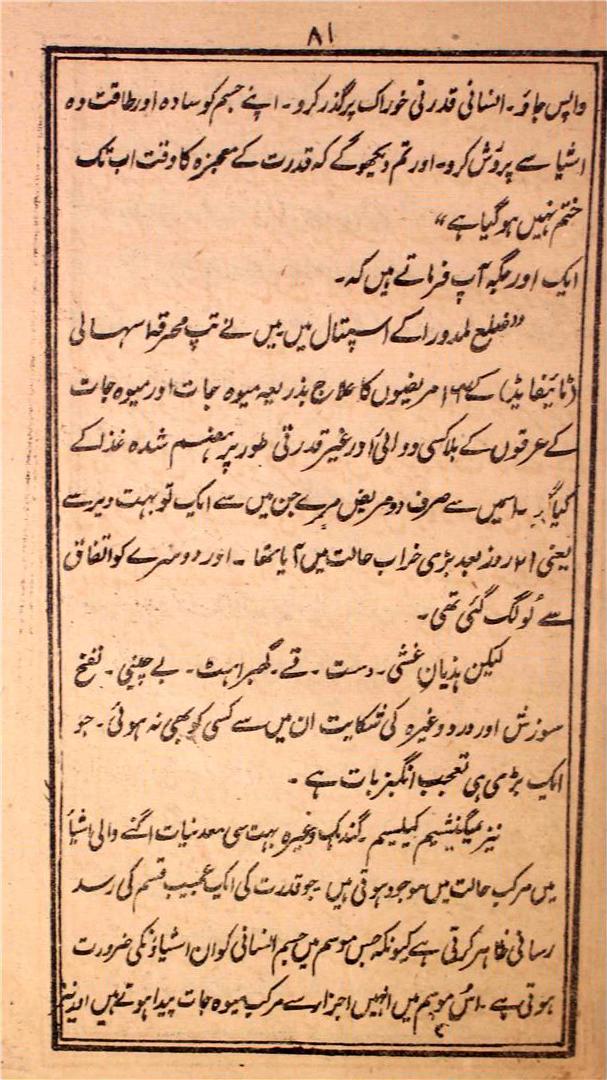 ۸۱
واپس جاؤ۔ انسانی قدرتی خوراک پر گذر کرو۔ اپنے جسم کو سادہ اور طاقت دہ
اشیا سے پرورش کرو۔ اور تم دیکھو گے کہ قدرت کے معجزہ کا وقت اب تک
ختم نہیں ہو گیا ہے“
ایک اور جگہ آپ فرماتے ہیں کہ۔
”ضلع لمدورا کے اسپتال میں میں نے تپ محرقہ اسہالی
(ٹائیفایڈ) کے مریضوں کا علاج بذریعہ میوہ جات اور میوہ جات
کے عرقوں کے بلا کسی دوائی اور غیر قدرتی طور پر ہضم شدہ غذا کے
کیا گیا۔ اسمیں سے صرف دو مریض مرے جن میں سے ایک تو بہت دیر سے
یعنی ۲۱ روز بعد بڑی خراب حالت میں آیا تھا۔ اور دوسرے کو اتفاق
سے لُو لگ گئی تھی۔
لیکن ہذیان غشی۔ دست۔ قے۔ گھبراہٹ۔ بے چینی۔ نفخ
سوزش اور درد وغیرہ کی شکایت ان میں سے کسی کو بھی نہ ہوئی۔ جو
ایک بڑی ہی تعجب انگیز بات ہے۔
نیز میگنیشیم کیلسیم۔ گندہک وغیرہ بہت سی معدنیات اگنے والی اشیأ
میں مرکب حالت میں موجود ہوتی ہیں۔ جو قدرت کی ایک عجیب قسم کی رسد
رسانی ظاہر کرتی ہے کیونکہ جس موسم میں جسم انسانی کو ان اشیاؤنکی ضرورت
ہوتی ہے۔ اُس موسم میں انہیں اجزار سے مرکب میوہ جات پیدا ہوتے ہیں اور نیز